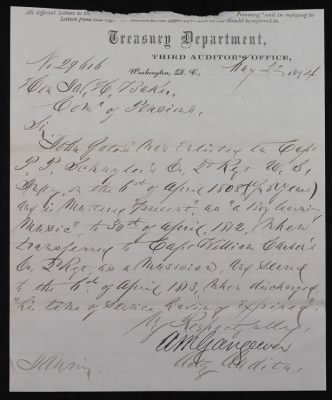 All Official Letters to
Treasury," and in replying to
Letters from
should be referred to.
Treasury Department,
THIRD AUDITOR'S OFFICE,
Washington, D. C., May 22, 1874
No. 29616
Hon Jas. H. Baker,
Com'r of Pensions.
Sir,
John Gates was enlisted in Capt
P. P. Schuyler's Co. 2d Regt U. S.
Army, on the 6th of April 1808 (for 5 years)
and is Mustered "present", as "a boy learning
Music", to 30th of April, 1812, when
transferred to Capt William
Co. 2d Regt, as a Musician, and served
to the 6th of April 1813, when discharged,
"his time of service having expired".
Very Respectfully,
A M Gangewer
Actg Auditor.